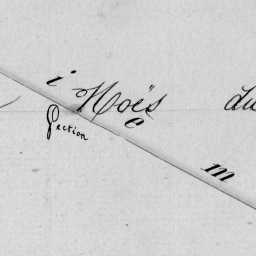 i
Hoës du
e
Section
m